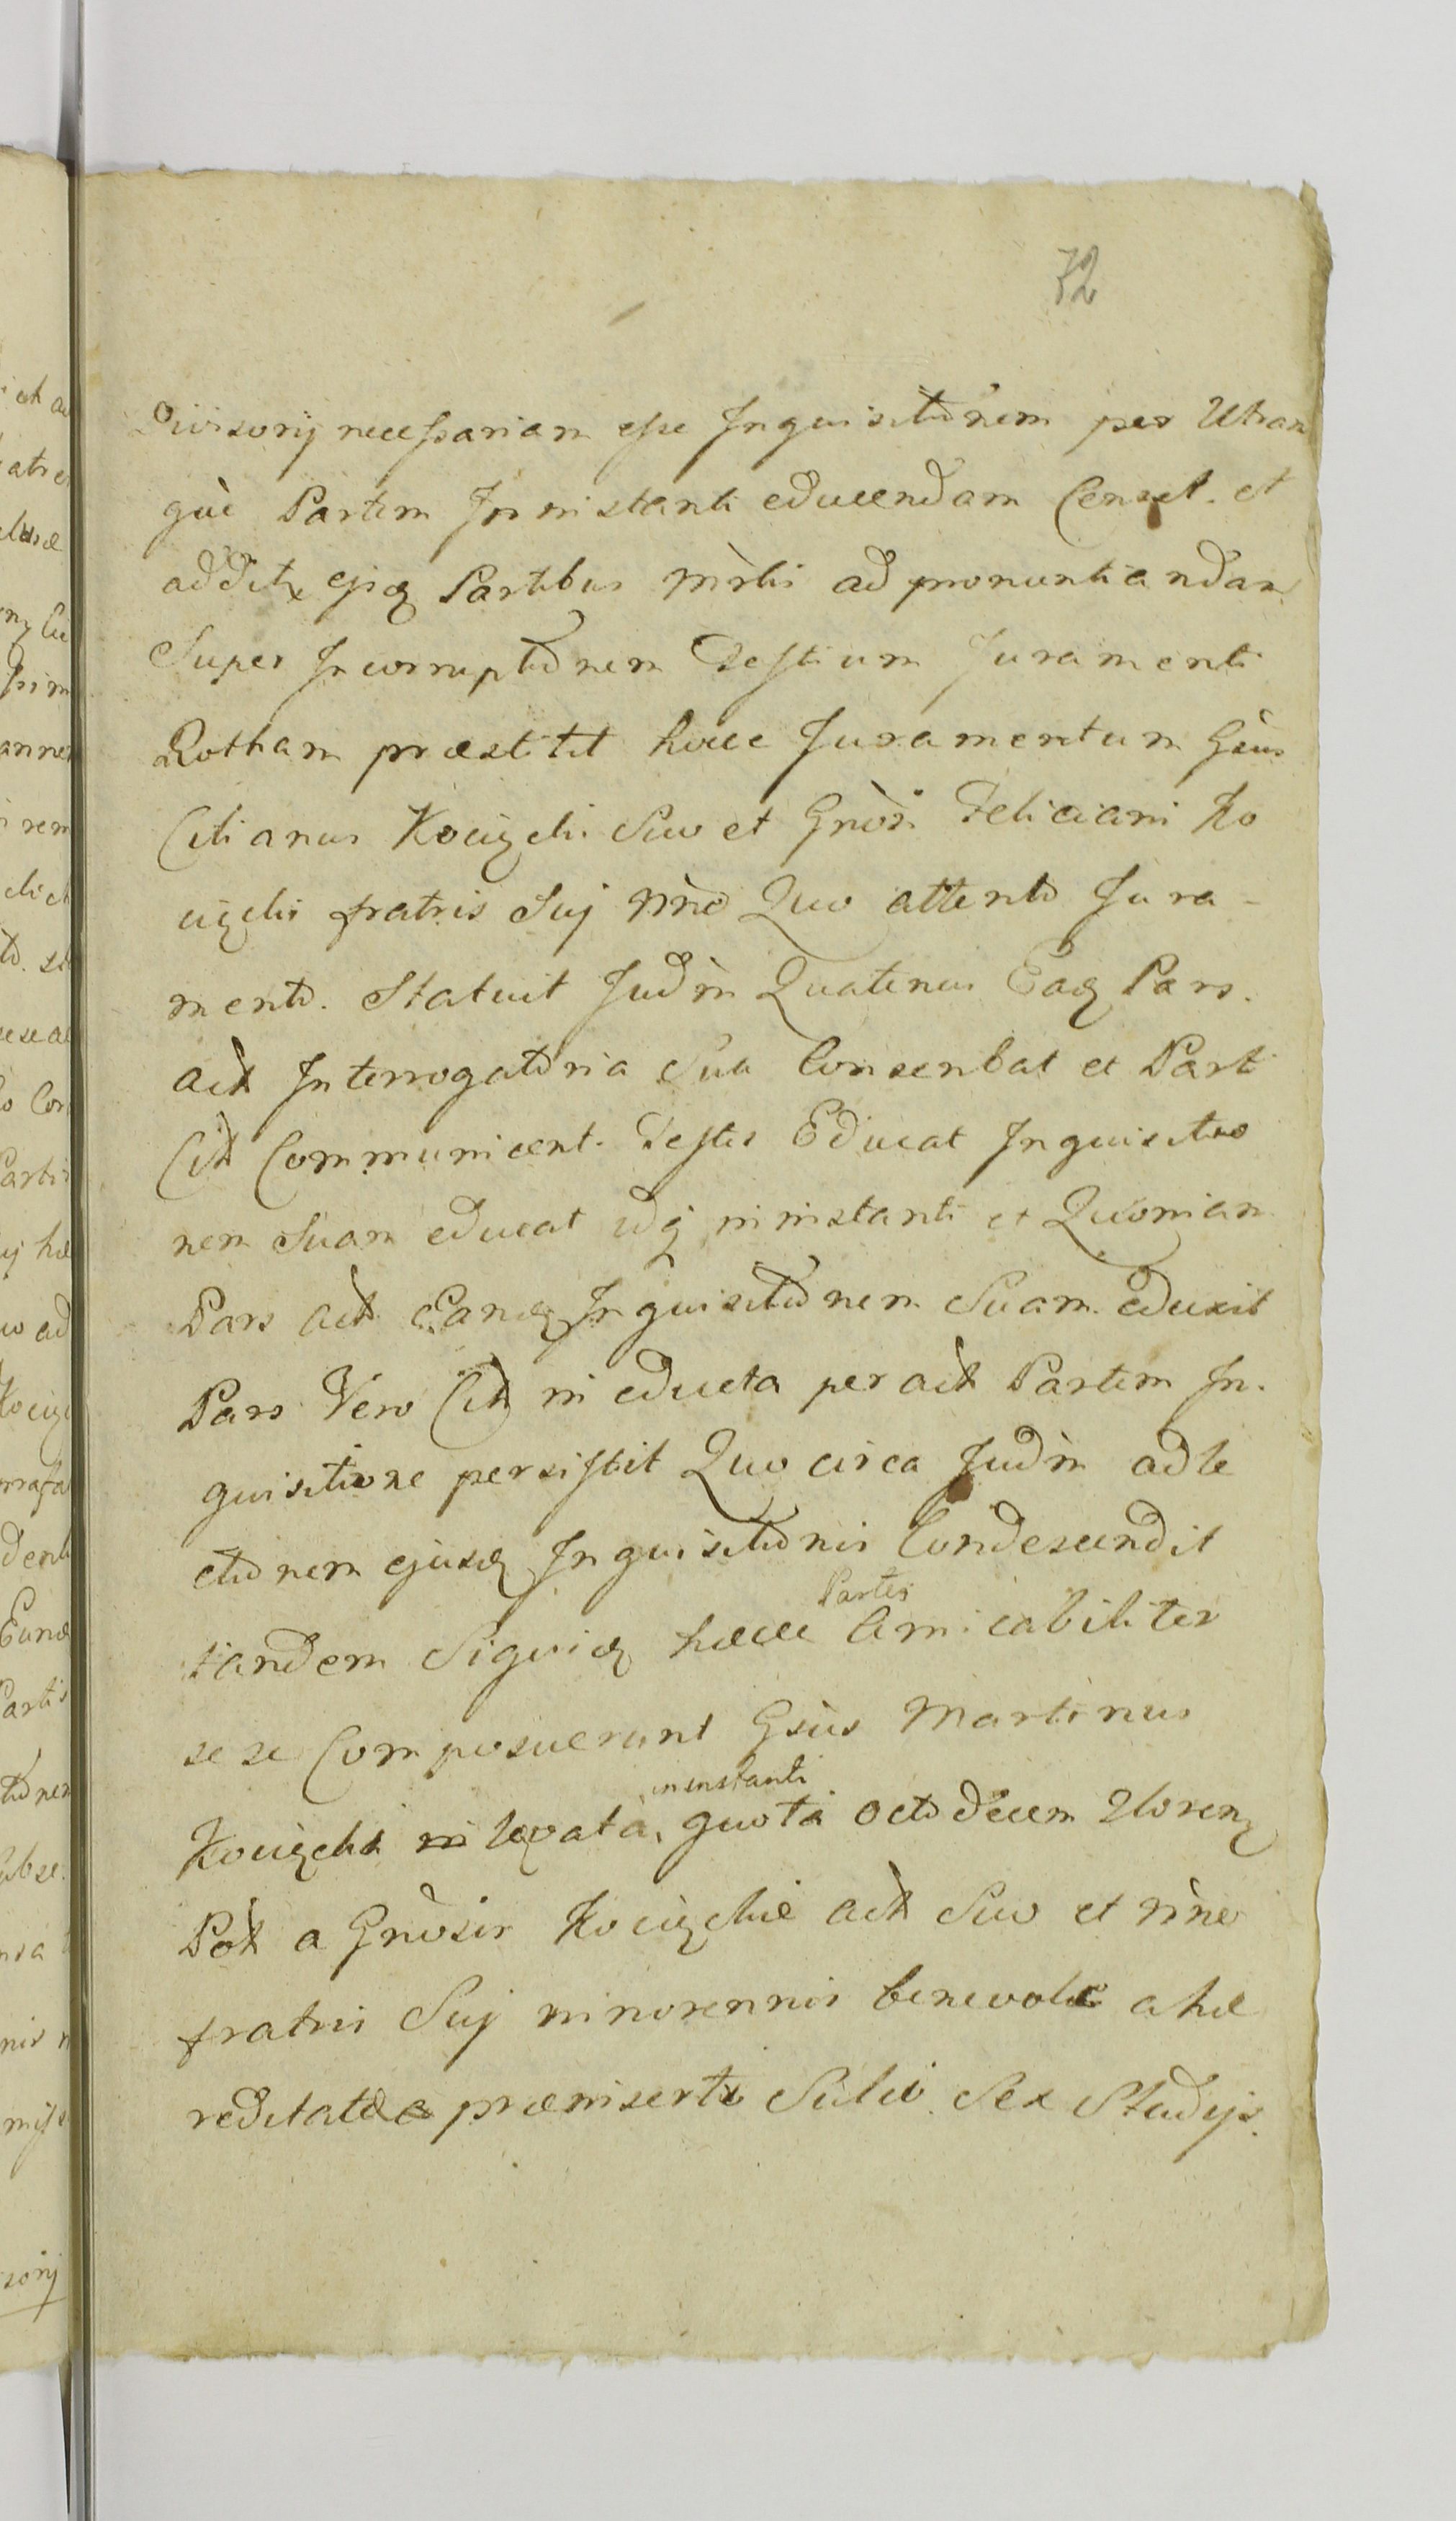 72
Divisorij necessariam esse Inquisitionem per Utran
què Partem In instanti educendam Censet. et
additx ejsq Partibus Mrlis ad pronuntiandam
Super Incorruptionem Testium Juramenti
Rotham præstitit hocce Juramentum Gsus
Cilianus Kociẹlli Suo et Gnosi Feliciani Ko
fratris Suj nnõ Quo attento Jura-
mento. Statuit Judm Quatenus Eaq Pars.
act Interrogatoria Sua Conscribat et Parti
Cit Communicent. Testes Educat Inquisitio
nem Suam educat idq in instanti et Quoniam
Pars act Eandq Inquisitionem Suam eduxit
Pars Vero Cit in educta per act Partem In.
quisitione persistit Quo circa Judm ad le
ctionem ejusdq Inquisitionis Condescendit
Partes
tandem Siquidq hæcce Amicabiliter
sese Composuerunt Gsus Martinus
in instanti
levata, quota octodecem Floren
Pol a Gnosis act Suo et nine
fratris Suj minorennis benevole ahæ
reditate præmiserti Sex Studijs.